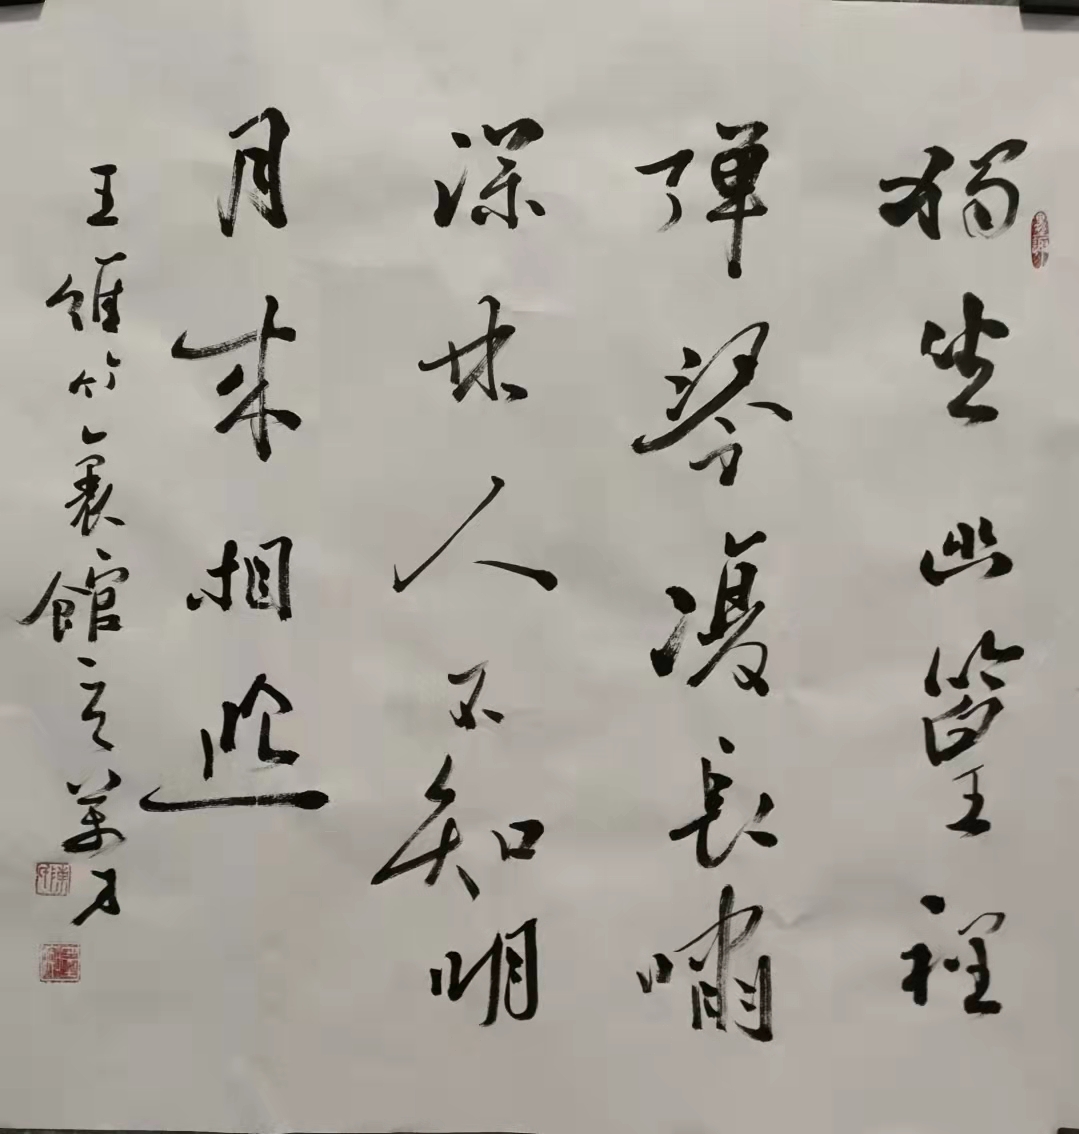 獨坐幽篁裡
彈琴復長嘯
深林人不知明
月來相照
王維竹裏館 言萬